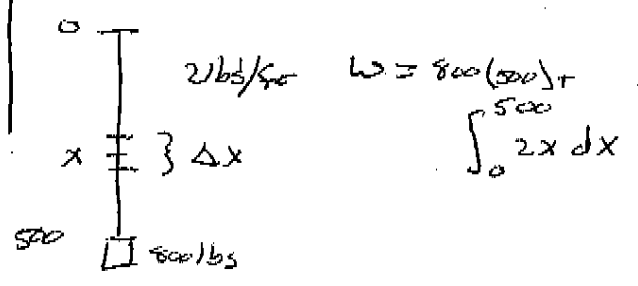 0
2 lbs/ft W = 800(500) +
∫₀⁵⁰⁰ 2x dx
x } Δx
500 800 lbs